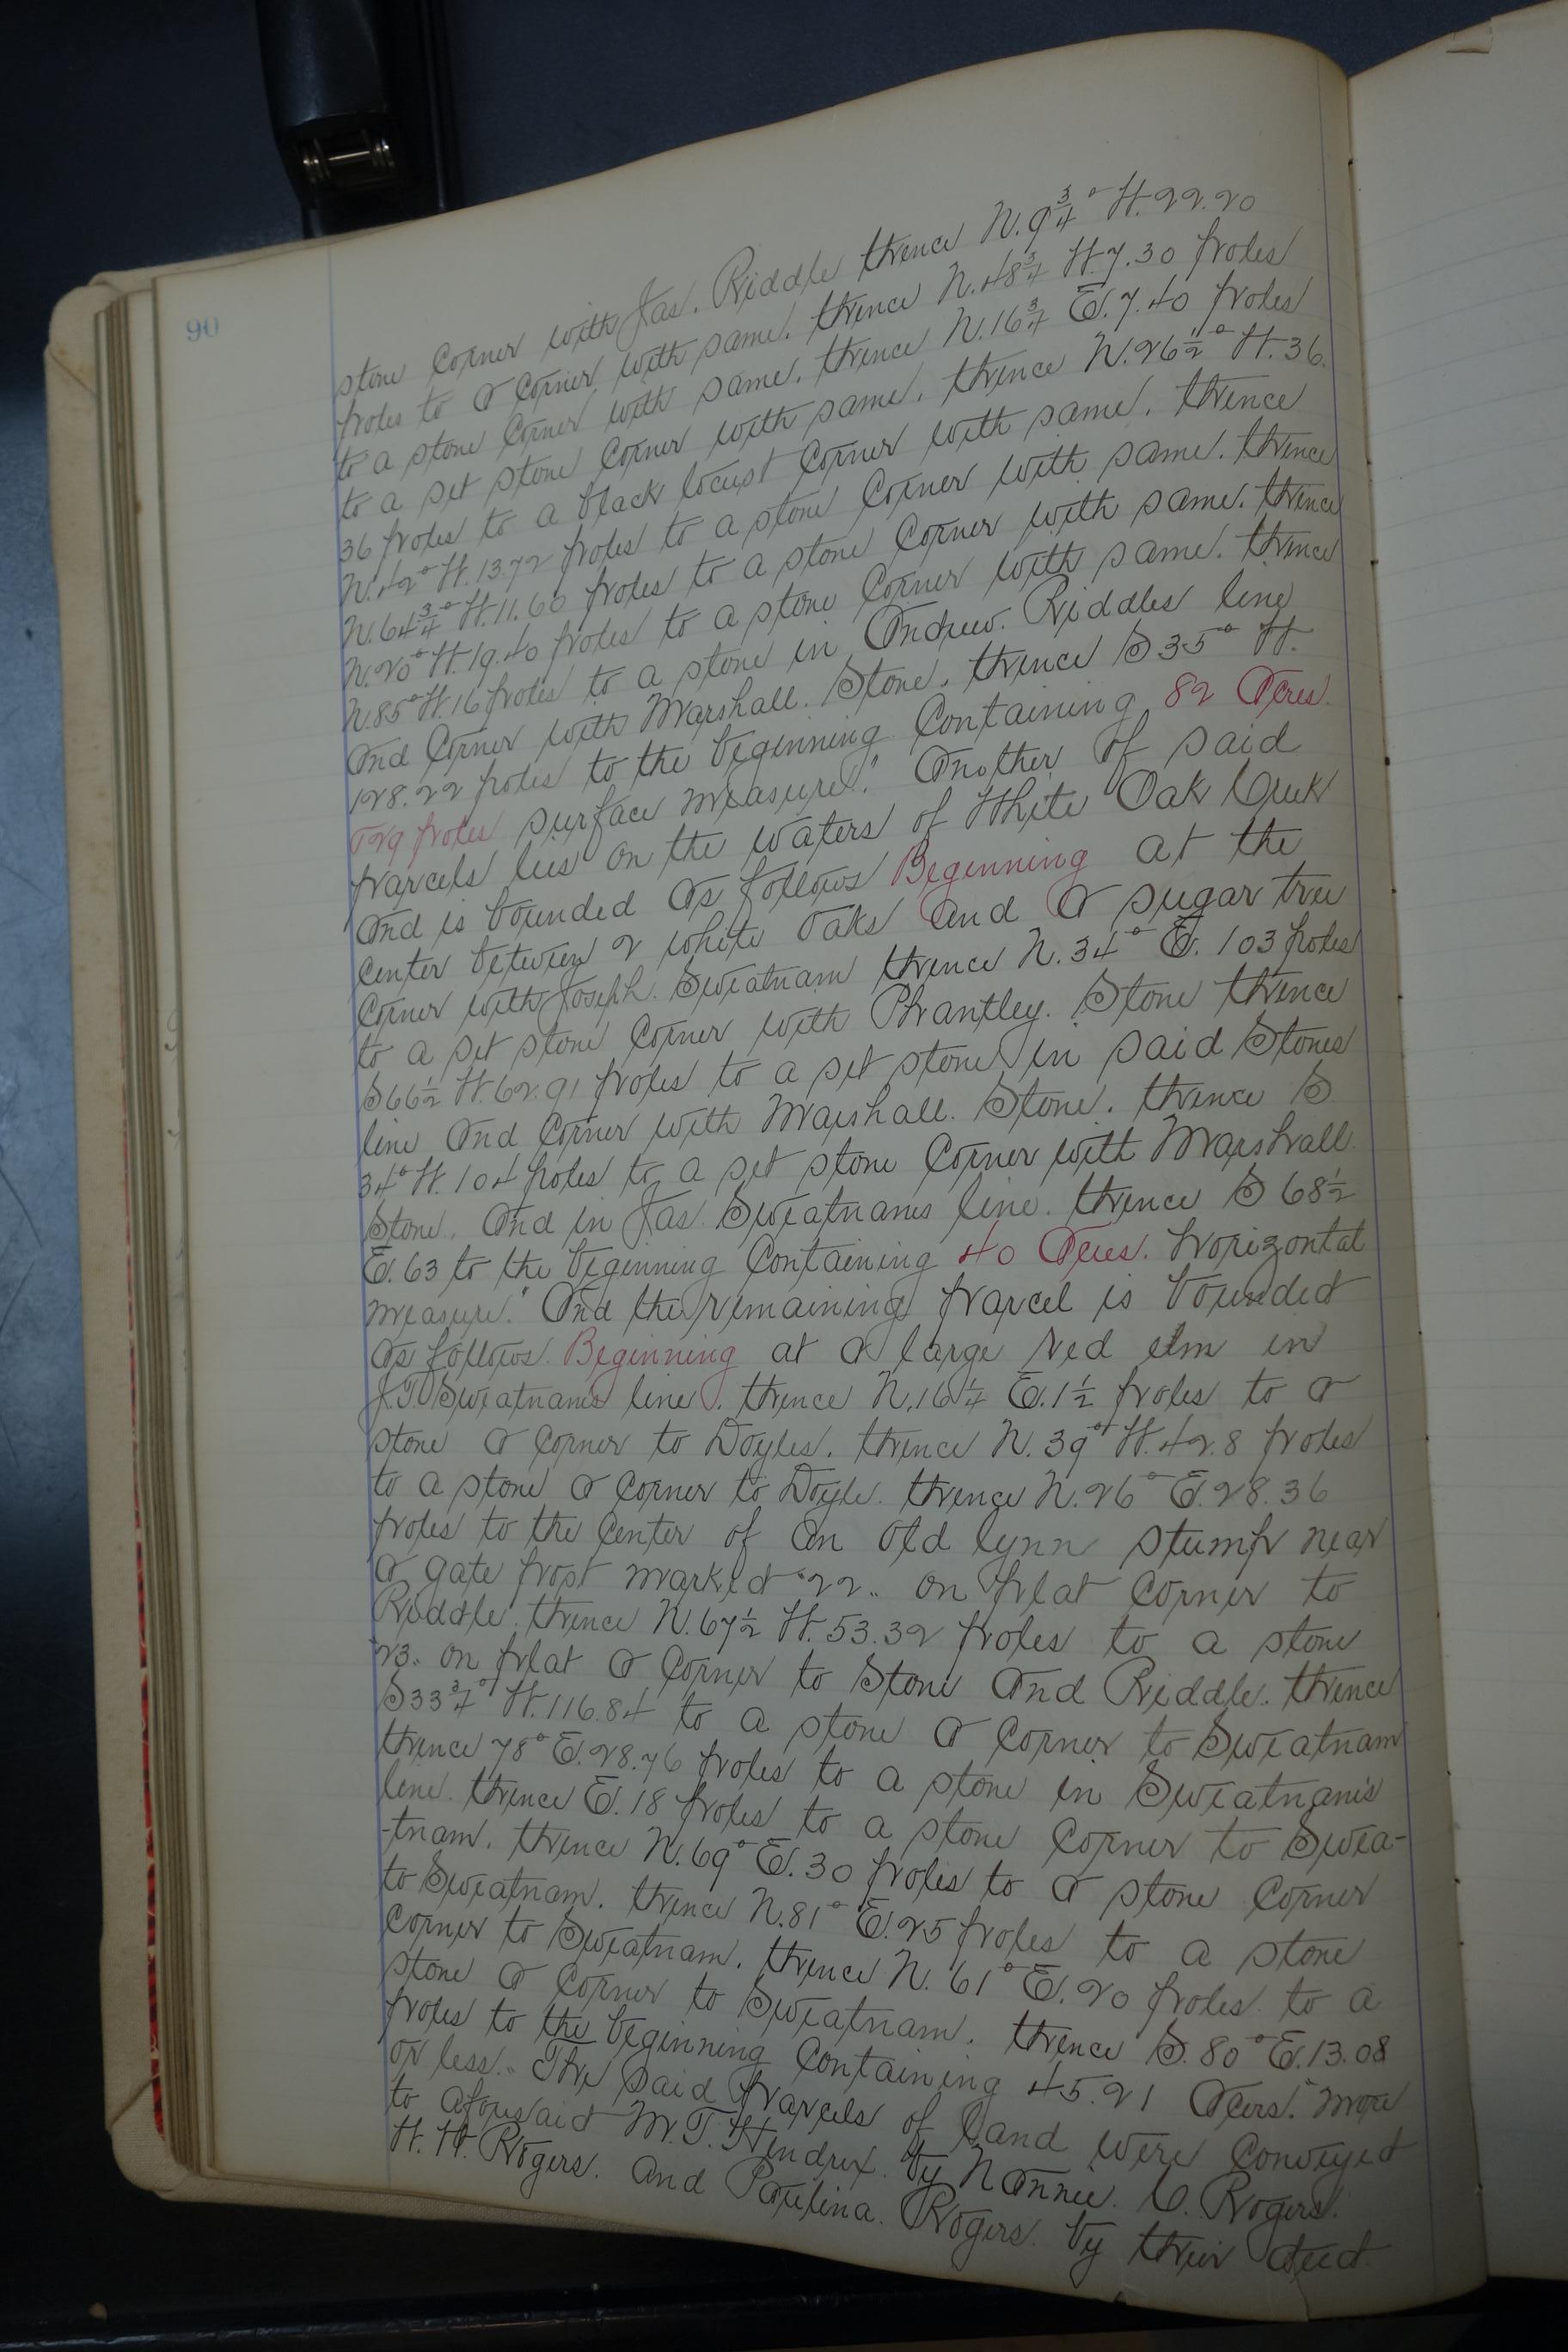 90
stone Corner with Jas. Riddle thence N. 9 3/4° W. 22.20
poles to a Corner with same. thence N. 48 3/4 W. 7.30 poles
to a stone Corner with same. thence N. 16 3/4 E. 7.40 poles
to a set stone Corner with same. thence N. 26 1/2° W. 36.
36 poles to a black locust Corner with same. thence
N. 42° W. 13.72 poles to a stone Corner with same. thence
N. 64 3/4° W. 11.60 poles to a stone Corner with same. thence
N. 20° W. 19.40 poles to a stone Corner with same. thence
N. 85° W. 16 poles to a stone in Andrew. Riddles line
And Corner with Marshall. Stone. thence S 35° W.
128.22 poles to the beginning Containing 82 Acres.
129 poles surface measure." Another of said
parcels lies on the waters of White Oak Creek
And is bounded As follows Beginning at the
center between 2 white oaks and a sugar tree
Corner with Joseph. Sweatnam thence N. 34° E. 103 poles
to a set stone Corner with Phantley. Stone thence
S 66 1/2 W. 62.91 poles to a set stone in said Stones
line And Corner with Marshall. Stone. thence S.
34° W. 104 poles to a set stone Corner with Marshall
Stone. And in Jas. Sweatnams line. thence S 68 1/2
E. 63 to the beginning Containing 40 Acres. horizontal
measure." And the remaining parcel is bounded
As follows. Beginning at a large red elm in
J.T. Sweatnams line. thence N. 16 1/4 E. 1 1/2 poles to a
stone a corner to Doyles. thence N. 39° W. 42.8 poles
to a stone a Corner to Doyle. thence N. 26° E. 28.36
poles to the Center of an old lynn stump near
a gate post marked "22" on plat Corner to
Riddle. thence N. 67 1/2 W. 53.32 poles to a stone
23. on plat a Corner to Stone And Riddle. thence
S 33 3/4° W. 116.84 to a stone a Corner to Sweatnam
thence 78° E. 28.76 poles to a stone in Sweatnam's
line. thence E. 18 poles to a stone Corner to Swea-
tnam. thence N. 69° E. 30 poles to a stone Corner
to Sweatnam. thence N. 81° E. 25 poles to a stone
Corner to Sweatnam. thence N. 61° E. 20 poles to a
stone a Corner to Sweatnam. thence S. 80° E. 13.08
poles to the beginning Containing 45.21 Acers." more
or less." The said parcels of land were Conveyed
to aforesaid M.T. Hendrix. by Nannie. C. Rogers.
W. H. Rogers. and Paulina. Rogers. by their deed